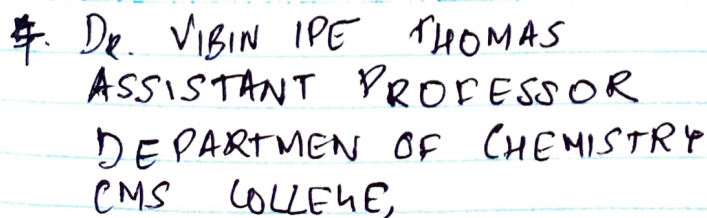 4. DR. VIBIN IPE THOMAS
ASSISTANT PROFESSOR
DEPARTMEN OF CHEMISTRY
CMS COLLEGE,